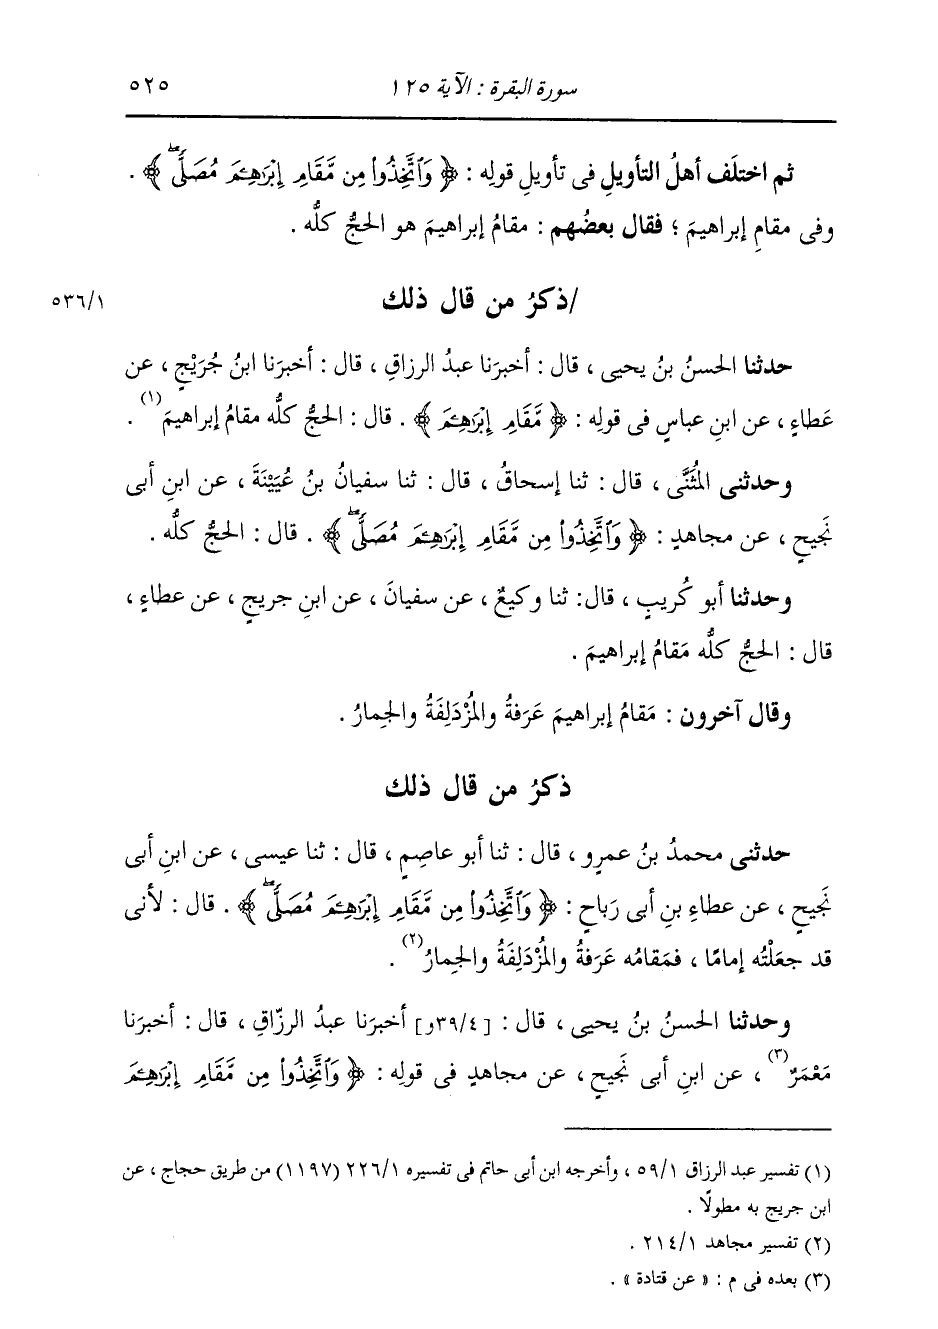 سورة البقرة : الآية ١٢٥ ٥٢٥
ثم اختلَف أهلُ التأويلِ فى تأويلِ قولِه : ﴿ وَٱتَّخِذُوا۟ مِن مَّقَامِ إِبْرَٰهِـۧمَ مُصَلًّىۖ ﴾ .
وفى مقامِ إبراهيمَ ؛ فقال بعضُهم : مقامُ إبراهيمَ هو الحجُّ كلُّه .
/ذكرُ من قال ذلك ٥٣٦/١
حدثنا الحسنُ بنُ يحيى ، قال : أخبرَنا عبدُ الرزاقِ ، قال : أخبرَنا ابنُ جُرَيْجٍ ، عن
عَطاءٍ ، عن ابنِ عباسٍ فى قولِه : ﴿ مَّقَامِ إِبْرَٰهِـۧمَ ﴾ . قال : الحجُّ كلُّه مقامُ إبراهيمَ (١) .
وحدثنى المُثَنَّى ، قال : ثنا إسحاقُ ، قال : ثنا سفيانُ بنُ عُيَيْنَةَ ، عن ابنِ أبى
نَجيحٍ ، عن مجاهدٍ : ﴿ وَٱتَّخِذُوا۟ مِن مَّقَامِ إِبْرَٰهِـۧمَ مُصَلًّىۖ ﴾ . قال : الحجُّ كلُّه .
وحدثنا أبو كُريبٍ ، قال: ثنا وكيعٌ ، عن سفيانَ ، عن ابنِ جريجٍ ، عن عطاءٍ ،
قال : الحجُّ كلُّه مَقامُ إبراهيمَ .
وقال آخرون : مَقامُ إبراهيمَ عَرَفةُ والمُزْدَلِفَةُ والجِمارُ .
ذكرُ من قال ذلك
حدثنى محمدُ بنُ عمرٍو ، قال : ثنا أبو عاصِمٍ ، قال : ثنا عيسى ، عن ابنِ أبى
نَجيحٍ ، عن عطاءِ بنِ أبى رَباحٍ : ﴿ وَٱتَّخِذُوا۟ مِن مَّقَامِ إِبْرَٰهِـۧمَ مُصَلًّىۖ ﴾ . قال : لأنى
قد جعَلْتُه إمامًا ، فمَقامُه عَرَفةُ والمُزْدَلِفَةُ والجِمارُ (٢) .
وحدثنا الحسنُ بنُ يحيى ، قال : [٣٩/٤و] أخبرَنا عبدُ الرزّاقِ ، قال : أخبرَنا
مَعْمَرٌ (٣) ، عن ابنِ أبى نَجيحٍ ، عن مجاهدٍ فى قولِه : ﴿ وَٱتَّخِذُوا۟ مِن مَّقَامِ إِبْرَٰهِـۧمَ
(١) تفسير عبد الرزاق ٥٩/١ ، وأخرجه ابن أبى حاتم فى تفسيره ٢٢٦/١ (١١٩٧) من طريق حجاج ، عن
ابن جريج به مطولًا .
(٢) تفسير مجاهد ٢١٤/١ .
(٣) بعده فى م : « عن قتادة » .